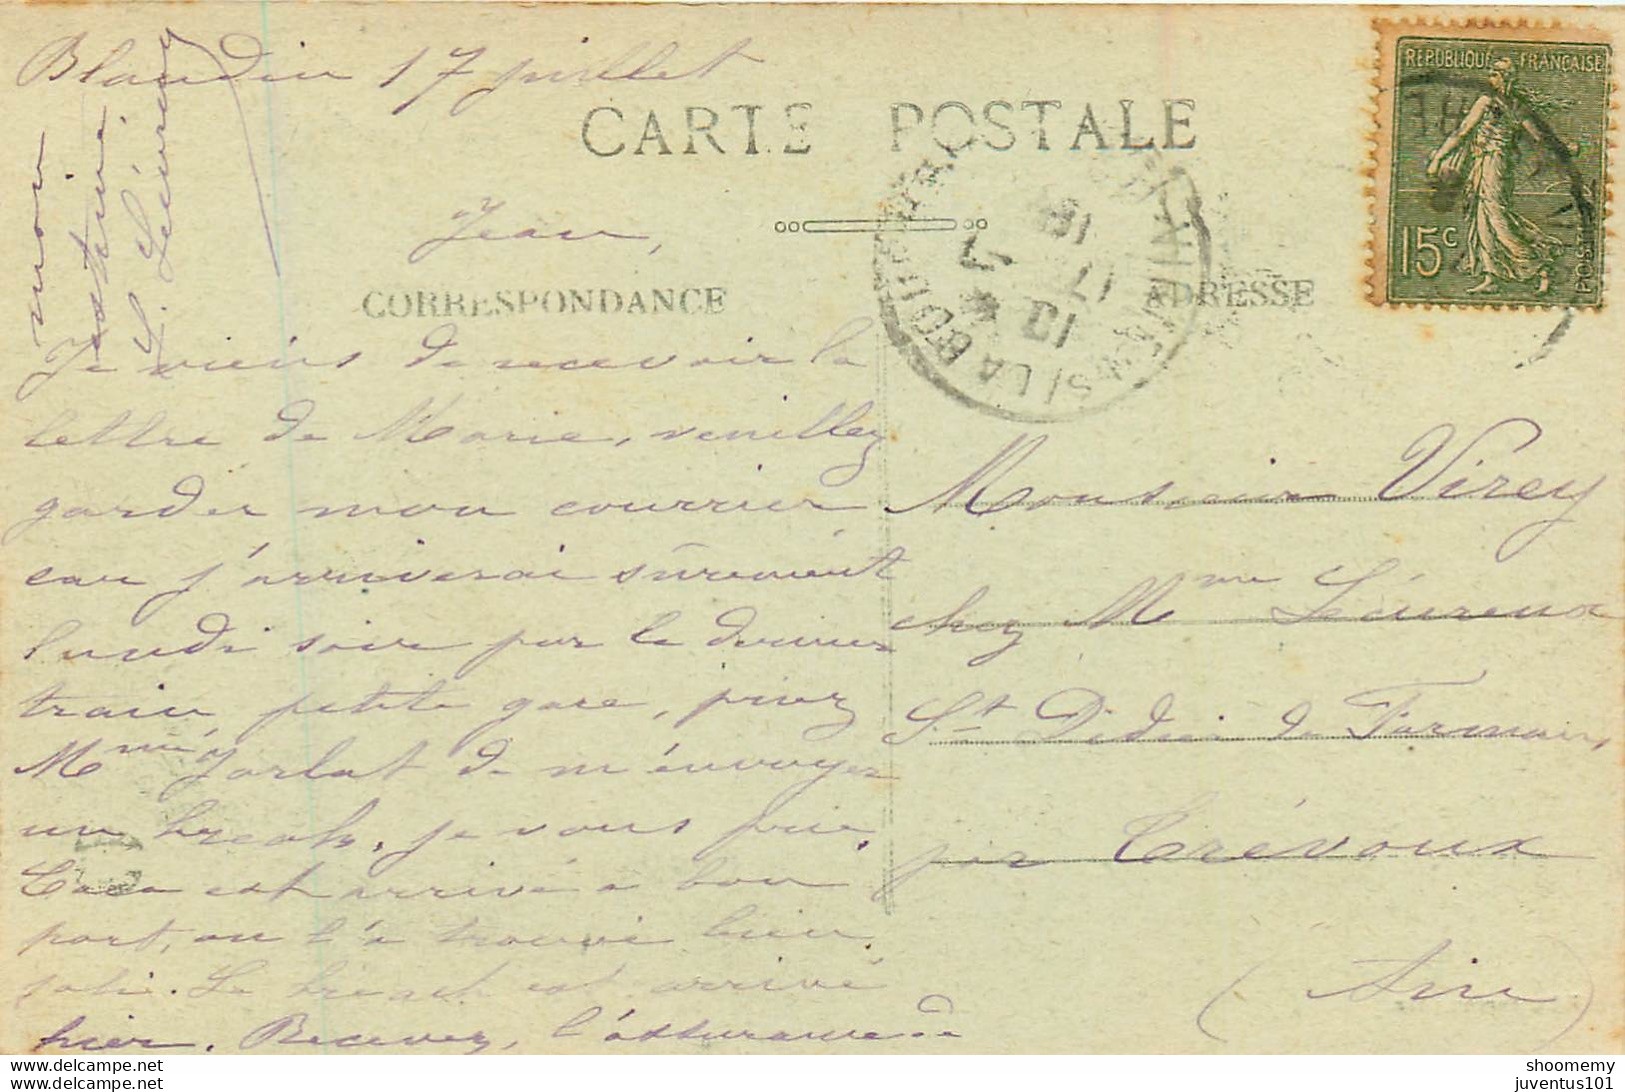 Blandin 17 juillet
CARTE POSTALE
Jean,
CORRESPONDANCE
ADRESSE
RÉPUBLIQUE FRANÇAISE
15c
POSTES
Je viens de recevoir la
lettre de Marie, veuillez
garder mon courrier
car j'arriverai sûrement
lundi soir par le dernier
train petite gare, priez
Mme Jarlat de m'envoyer
un break, je vous prie.
est arrivé à bon
port, on l'a trouvé bien
jolie. Le break est arrivé
hier. Recevez, l'assurance de
mon
estime.
Monsieur Virey
chez Mme Léureux
St Didier de Formans,
par Trévoux
(Ain)
shoomemy
juventus101